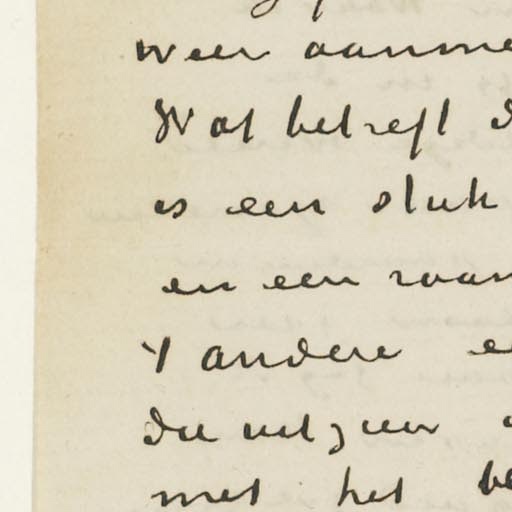 weer aanme
Wat betreft d
is een stuk
en een raam
't andere e
die uit zeer
met het be